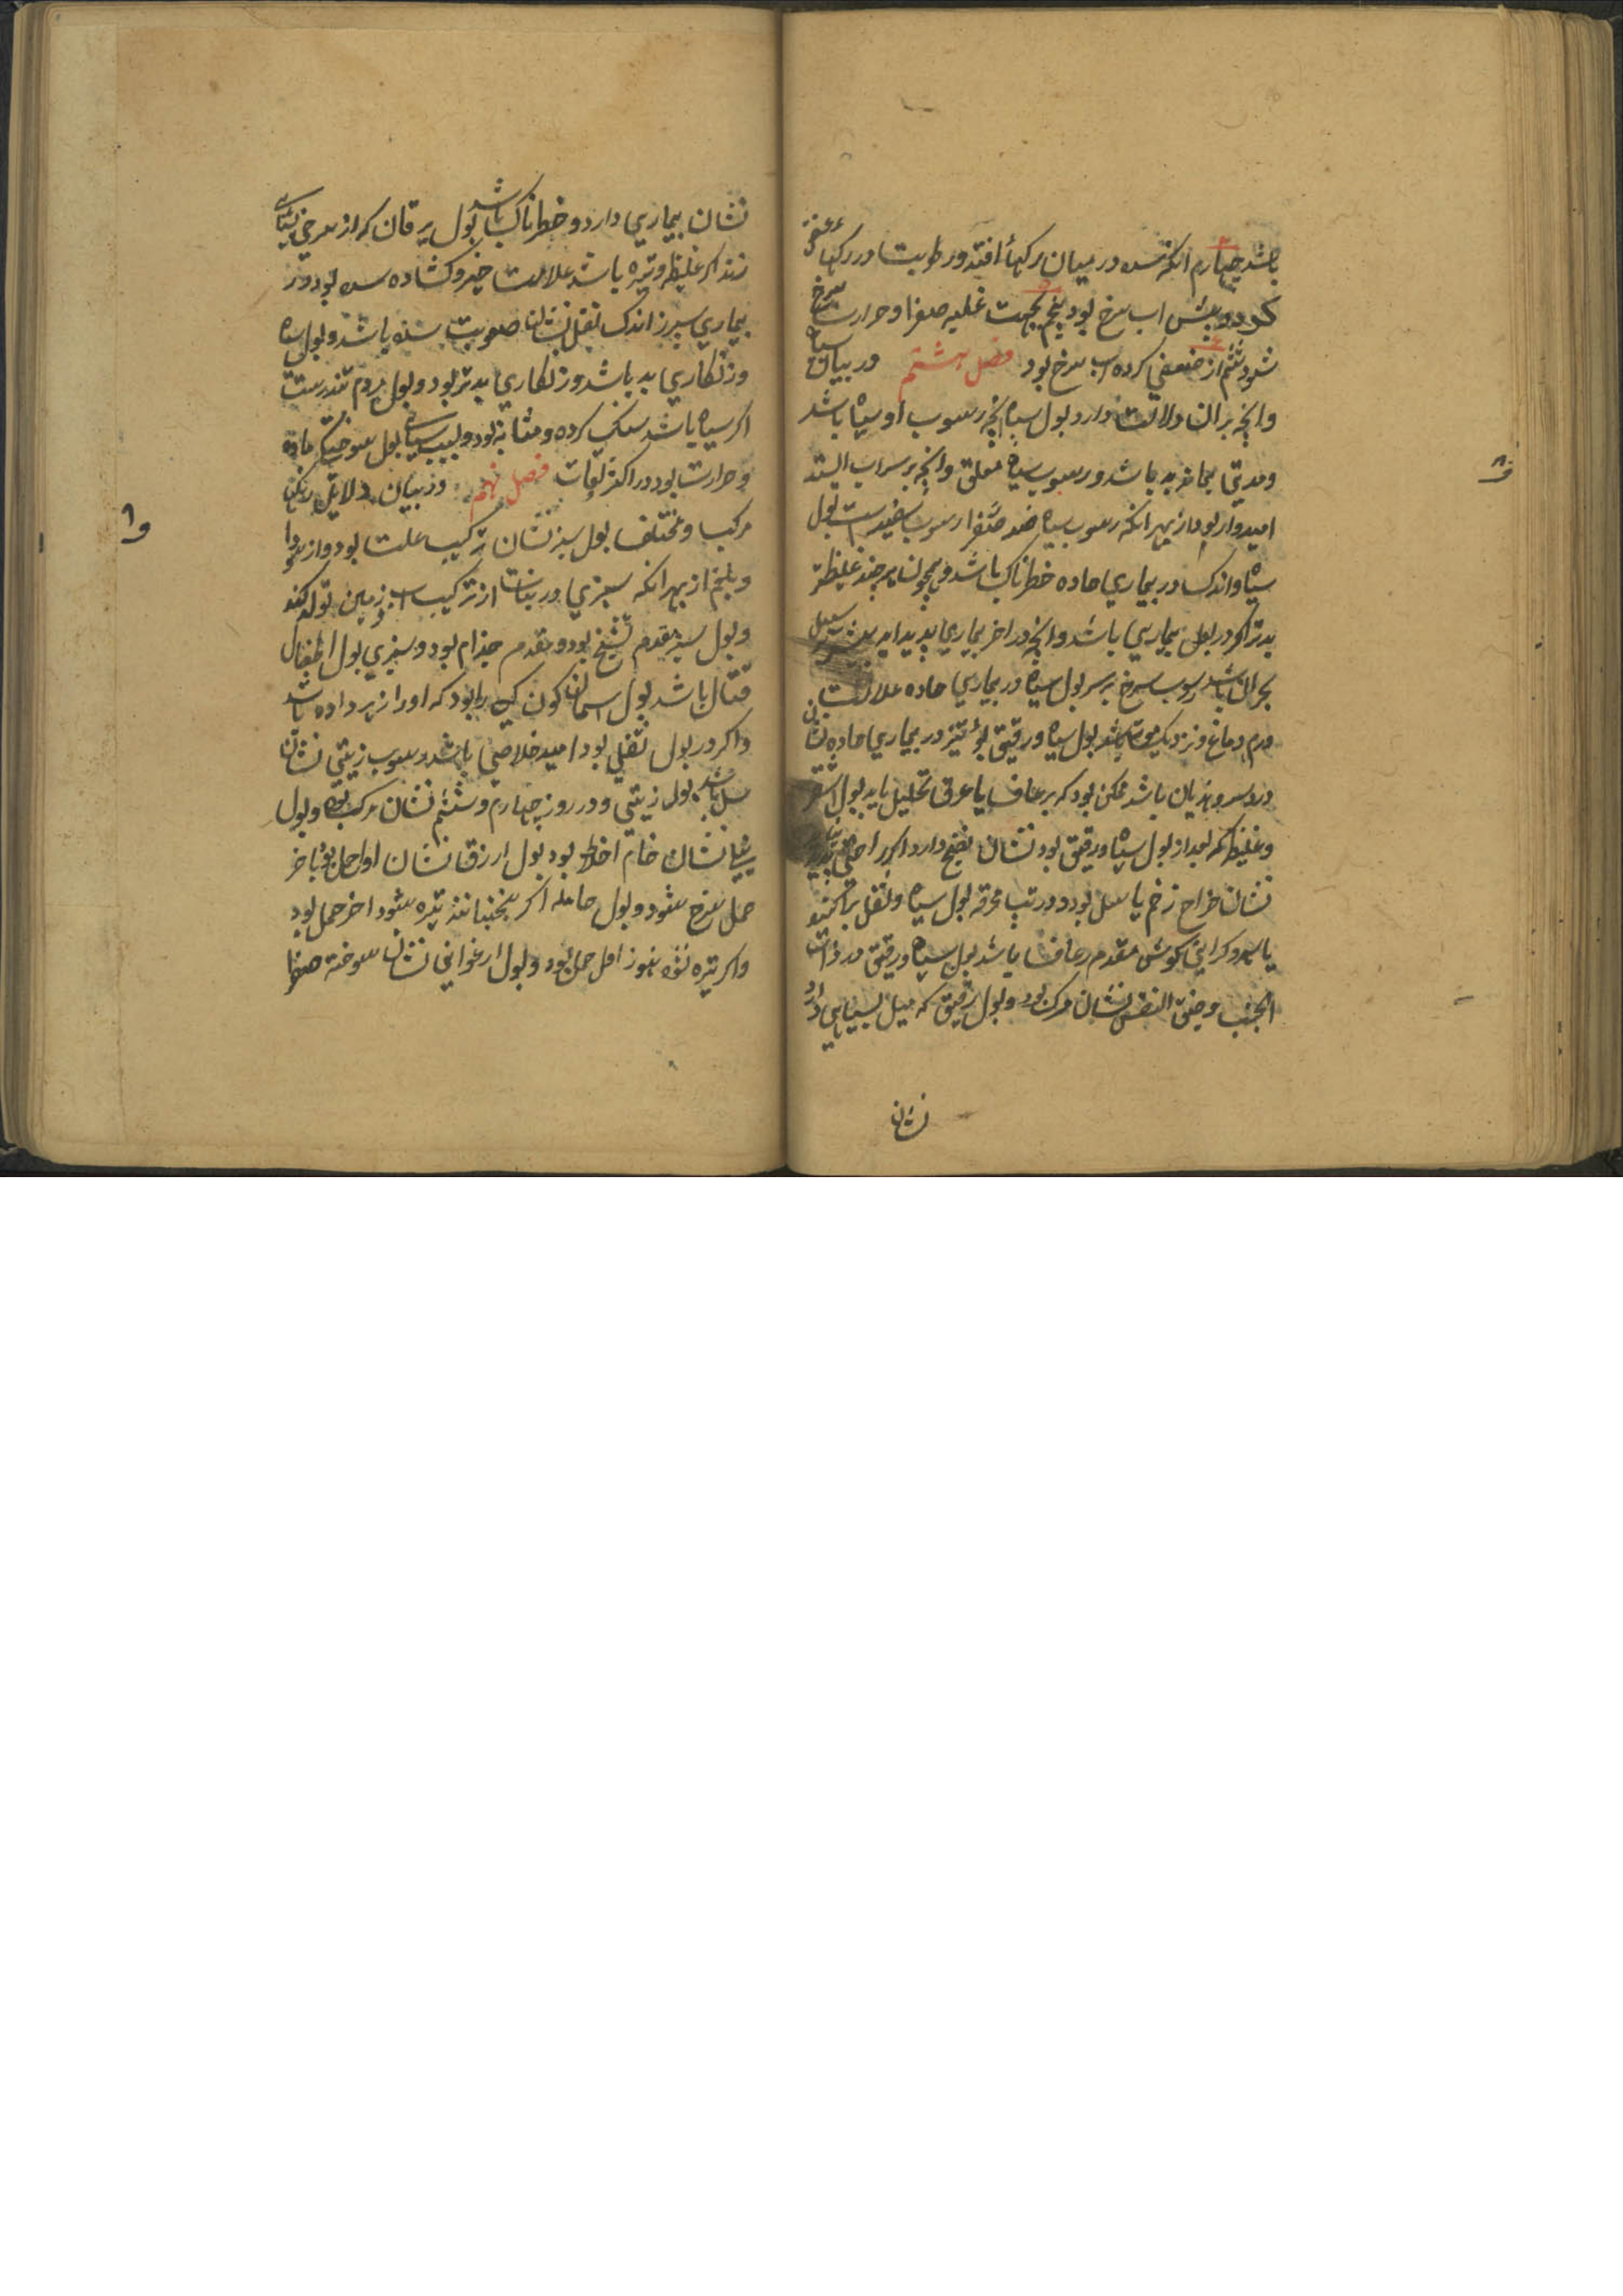 باشد چهارم انکه سده در میان رکهاء افتد و رطوبت در رکها عفن
کردد پس اب سرخ بود پنجم بجهت غلبه صفرا و حرارت سرخ
شود ششم از ضعیفی کرده اب سرخ بود فصل هشتم در بیان سیاه
وانچه بران دلالت دارد بول سیاه انچه رسوب او سیاه باشد
و مدتی بماند بد باشد و رسوب سیاه معلق وانچه بر سر اب ایستد
امیدوار بود از بهر انکه رسوب سیاه ضد رسوب سفید است بول
سیاه و اندک در بیماری حاده خطرناک باشد و همچنان هرچند غلیظتر
بدتر اکر در اول بیماری باشد وانچه در اخر بیماری پدید اید
بحران باشد رسوب سرخ بر سر بول سیاه در بیماری حاده علامت
ورم دماغ و نزدیک موت باشد بول سیاه و رقیق بوء تیز در بیماری حاده نشان
درد سر و هذیان باشد ممکن بود که برعاف یا عرق تحلیل یابد بول اشقر
و غلیظ که بعد از بول سیاه و رقیق بود نشان نضج دارد اکر راحتی
نشان خراج زخم یا سل بود و در تب محرقه بول سیاه و ثفل پراکنده
یا سر و کرانی کوش مقدم رعاف باشد بول سیاه و رقیق در ذات
الجنب و ضیق النفس نشان مرک بود و بول رقیق که میل بسیاهی دارد
نشان
نشان بیماری دارد و خطرناک باشد بول یرقان که از سرخی بسیاهی
زند اکر غلیظ و تیره باشد علامت خیر و کشاده سده بود و در
بیماری سپرز اندک ثفل نشان صعوبت سده باشد و بول سیاه
و زنکاری بد باشد و زنکاری بدتر بود و بول مردم تندرست
اکر سیاه باشد سنک کرده و مثانه بود و سبب سیاهی بول سوختکی ماده
و حرارت بود در اکثر اوقات فصل نهم در بیان دلایل رنکهای
مرکب و مختلف بول سبز نشان ترکیب علت بود از سودا
و بلغم از بهر انکه سبزی در نبات از ترکیب اب و زمین تولد کند
و بول سبز مقدم تشنج بود و مقدم جذام بود و سبزی بول اطفال
قتال باشد بول اسمان کون کسی را بود که او را زهر داده باشد
واکر در بول ثفلی بود امید خلاصی باشد رسوب زیتی نشان
سل باشد بول زیتی در روز چهارم و ششم نشان مرک بود و بول
نشان خام اخلاط بود بول ازرق نشان اول حمل بود باخر
حمل سرخ شود و بول حامله اکر بجنبانند تیره شود اخر حمل بود
واکر تیره نشود هنوز اول حمل بود و بول ارغوانی نشان سوخته صفرا